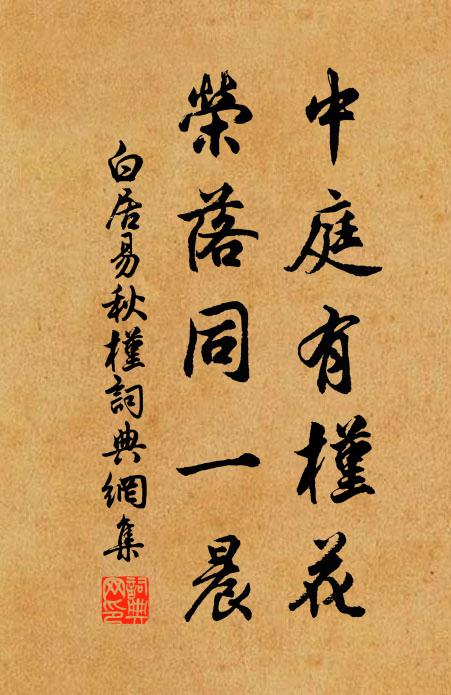 中庭有槿花
榮落同一晨
白居易秋槿詞典網集
詞典网印